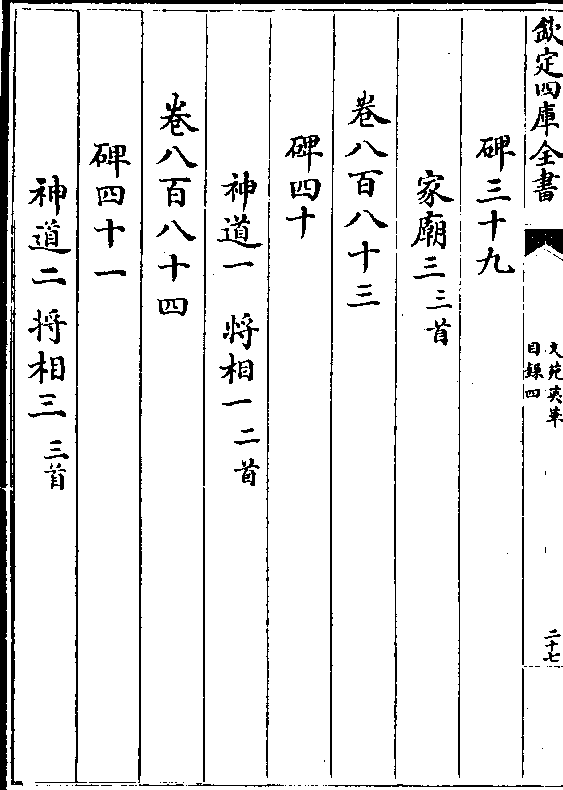 欽定四庫全書
文苑英華
目錄四
二十七
碑三十九
家廟三三首
卷八百八十三
碑四十
神道一 將相一二首
卷八百八十四
碑四十一
神道二將相三三首